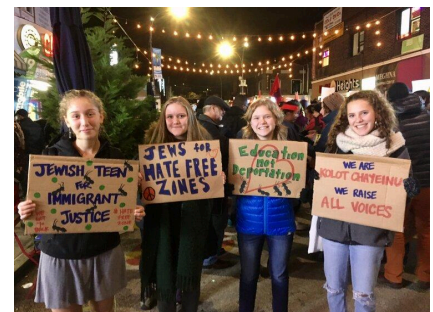 JEWISH TEEN
FOR
IMMIGRANT
JUSTICE
JEWS for
HATE FREE
ZONES
Education
not
Deportation
WE ARE
KOLOT CHAYEINU
WE RAISE
ALL VOICES
Heights